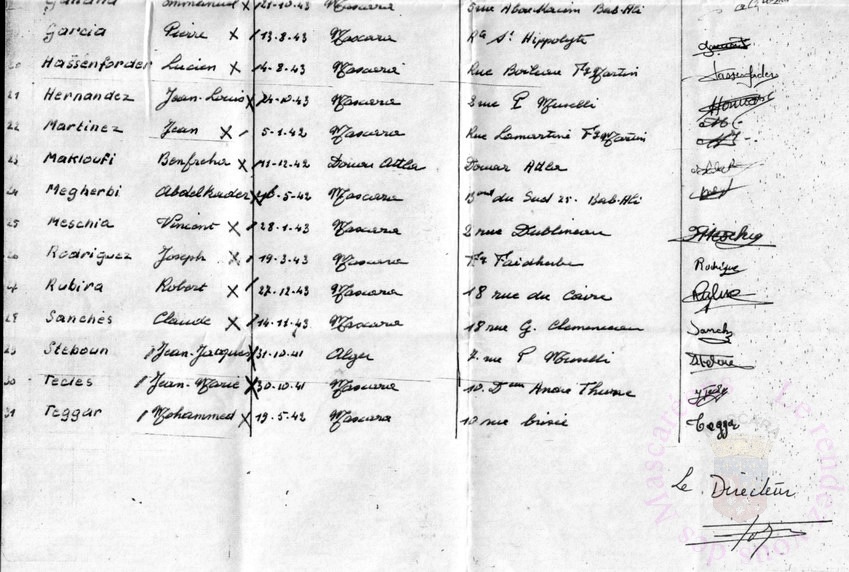 Emmanuel x 21-10-43 Mascara 5 rue Abou-Macim Bab-Ali
Garcia Pierre x 13-8-43 Mascara Rte St Hippolyte
20 Hassenforder Lucien x 14-8-43 Mascara Rue Boileau Fg Martini Hassenforder
21 Hernandez Jean-Louis x 24-10-43 Mascara 2 rue P
22 Martinez Jean x 5-1-42 Mascara Rue Lamartine Fg Martini
23 Makloufi x 11-12-42 Douar Attba Douar Attba
24 Megherbi Abdelkader x -5-42 Mascara du Sud 25. Bab-Ali
25 Meschia Vincent x 28-1-43 Mascara 2 rue Dublineau Meschia
26 Rodriguez Joseph x 19-3-43 Mascara Fg Faidherbe Rodrigue
Rubira Robert x 27-12-43 Mascara 18 rue du Caire
Sanchès Claude x 14-11-43 Mascara 18 rue G. Clemenceau Sanchs
Steboun Jean-Jacques x 31-10-41 Alger 7 rue P
30 Tecles Jean-Marie x 30-10-41 Mascara 10 André
31 Teggar Mohammed x 19-5-42 Mascara 10 rue Teggar
Le Directeur